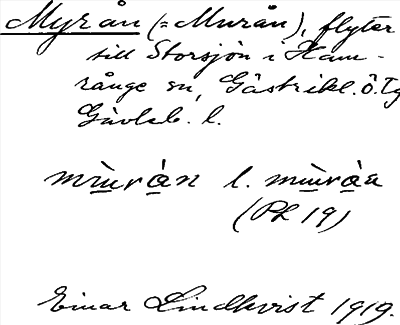 Myrån (=Murån), flyter
till Storsjön i Ham-
rånge sn, Gästrikl. ö. Tg
Gävleb. l.
mùrȧ̀n l. mùrȧ̀a
(Pl 19)
Einar Lindkvist 1919.